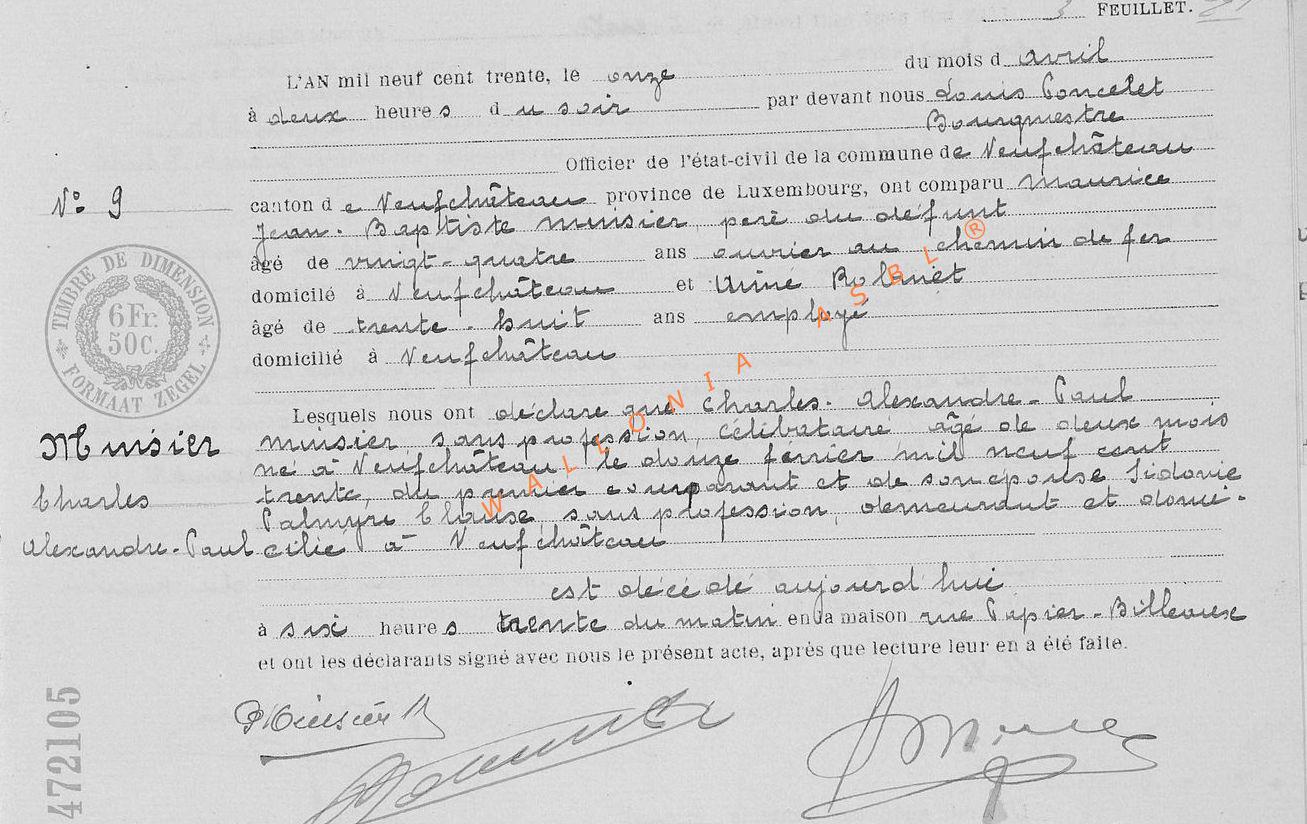 3 FEUILLET.
L'AN mil neuf cent trente, le onze du mois d avril
à deux heures du soir par devant nous Louis Poncelet
Bourgmestre
Officier de l'état-civil de la commune de Neufchâteau
N° 9
canton de Neufchâteau province de Luxembourg, ont comparu Maurice
Jean-Baptiste Minsier, père du défunt
âgé de vingt-quatre ans ouvrier au chemin de fer
domicilé à Neufchâteau et Aimé Robinet
âgé de trente-huit ans employé
domicilié à Neufchâteau
TIMBRE DE DIMENSION
6 Fr.
50 C.
FORMAAT ZEGEL
Lesquels nous ont déclaré que Charles-Alexandre-Paul
Minsier
Charles
Alexandre-Paul
Minsier sans profession, célibataire âgé de deux mois
né à Neufchâteau le douze fevrier mil neuf cent
trente, du premier comparant et de son épouse Sidonie
Palmyre sans profession, demeurant et domi-
cilié à Neufchâteau
est décédé aujourd'hui
à six heures trente du matin en la maison rue Papier-
et ont les déclarants signé avec nous le présent acte, après que lecture leur en a été faite.
472105
WALLONIA ASBL ®